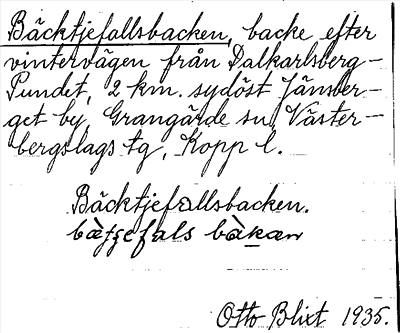 Bäcktjefallsbacken, backe efter
vintervägen från Dalkarlsberg-
Pundet, 2 km. sydöst Jänsber-
get by, Grangärde sn, Väster-
bergslags tg, Kopp l.
Bäcktjefallsbacken.
Otto Blixt 1935.